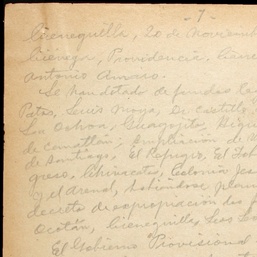 - 7 -
Cieneguilla, 20 de Noviembr
Ciénega, Providencia, Ciene
Antonio Amaro.
Se han dotado de fundos Lega
Patos, Luis Moya, De Castillo,
Los Ochoa, Guasyito, Higu
de Comatlán; ampliación de
de Santiago, El Refugio, El Tab
greso, Chinacates, Colonia Jes
y el Arenal, habiéndose, plan
decreto de expropiación dos f
Ocotán, Cieneguilla, Los Lo
El Gobierno Provisional